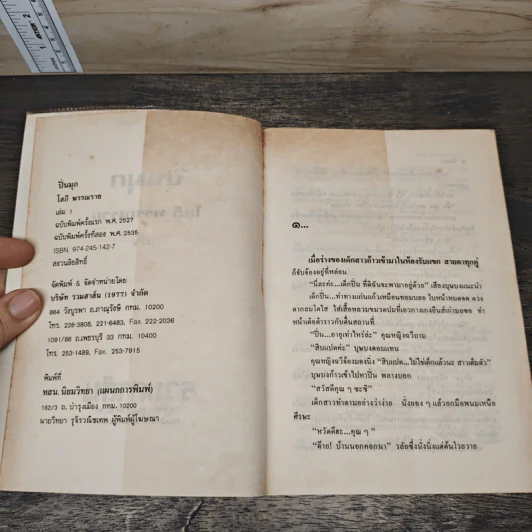 ปิ่นมุก
โสภี พรรณราย
เล่ม 1
ฉบับพิมพ์ครั้งแรก พ.ศ. 2527
ฉบับพิมพ์ครั้งที่สอง พ.ศ. 2535
ISBN. 974-245-142-7
สงวนลิขสิทธิ์
จัดพิมพ์ & จัดจำหน่ายโดย
บริษัท รวมสาส์น (1977) จำกัด
864 วังบูรพา ถ.ภาณุรังษี กทม. 10200
โทร. 226-3808, 221-6483, Fax. 222-2036
1091/86 ถ.เพชรบุรี 33 กทม. 10400
โทร. 253-1489, Fax. 253-7915
พิมพ์ที่
หสน. นิยมวิทยา (แผนกการพิมพ์)
162/3 ถ.บำรุงเมือง กทม. 10200
นายวิทยา รุจิรวณิชเทพ ผู้พิมพ์ผู้โฆษณา
๑...
เมื่อร่างของเด็กสาวก้าวเข้ามาในห้องรับแขก สายตาทุกคู่
ก็จับจ้องอยู่ที่หล่อน
“นี่ละค่ะ...เด็กปิ่น ที่ดิฉันจะพามาอยู่ด้วย” เสียงบุษบงแนะนำ
เด็กปิ่น...ท่าทางแก่นแก้วเหมือนทอมบอย ใบหน้าหมดจด ดวง
ตากลมโตใส ใส่เสื้อหลวมขมวดปมที่เอวกางเกงยีนส์เก่ามอซอ ทำ
หน้าเด๋อด๋าราวกับตื่นสถานที่
“ปิ่น...อายุเท่าไหร่ล่ะ” คุณหญิงฉวีถาม
“สิบแปดค่ะ” บุษบงตอบแทน
คุณหญิงฉวีจ้องมองนิ่ง “สิบแปด...ไม่ใช่เด็กแล้วนะ สาวเต็มตัว”
บุษบงก้าวเข้าไปหาปิ่น พลางบอก
“สวัสดีคุณ ๆ ซะซิ”
เด็กสาวทำตามอย่างว่าง่าย นั่งยอง ๆ แล้วยกมือพนมเหนือ
ศีรษะ
“หวัดดีฮะ...คุณ ๆ”
“ต๊าย! บ้านนอกคอกนา” วลัยซึ่งนั่งนิ่งแต่ต้นโวยวาย